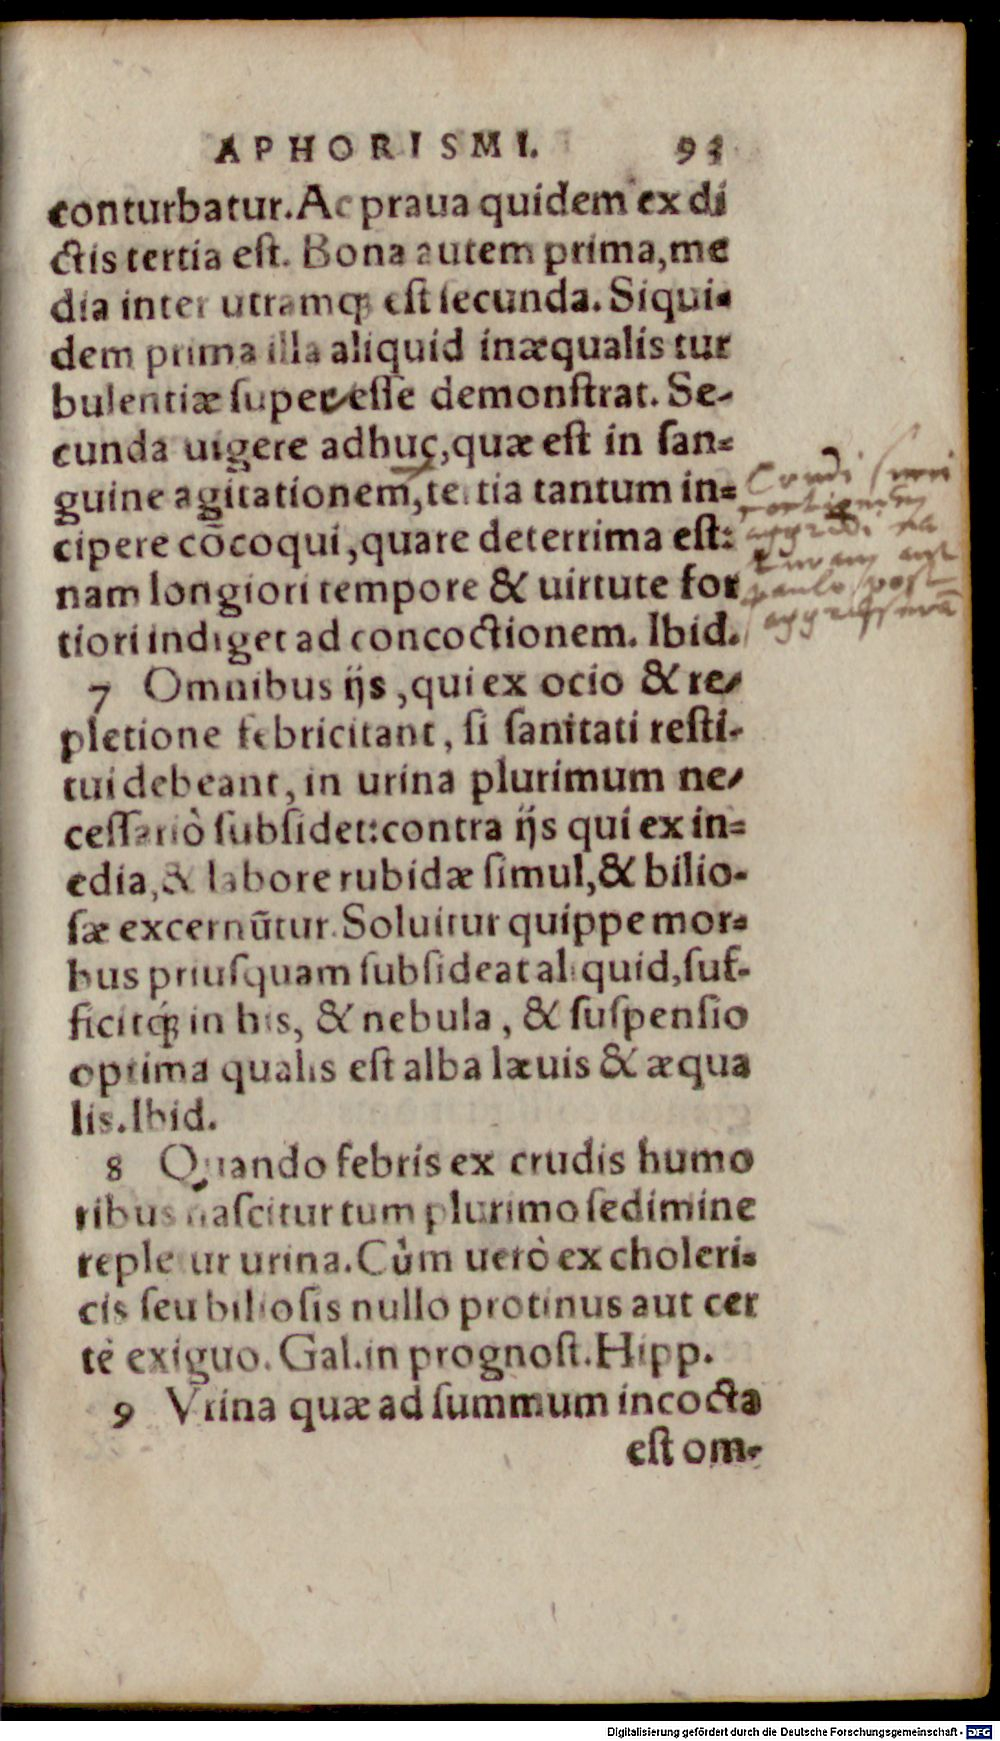 APHORISMI. 93
conturbatur. Ac praua quidem ex di
ctis tertia eſt. Bona autem prima, me
dia inter utramq́; eſt ſecunda. Siqui-
dem prima illa aliquid inæqualis tur
bulentiæ ſupereſſe demonſtrat. Se-
cunda uigere adhuc, quæ eſt in ſan-
guine agitationem, tertia tantum in-
cipere cōcoqui, quare deterrima eſt:
nam longiori tempore & uirtute for
tiori indiget ad concoctionem. Ibid.
7 Omnibus ijs, qui ex ocio & re-
pletione febricitant, ſi ſanitati reſti-
tui debeant, in urina plurimum ne-
ceſſariò ſubſidet: contra ijs qui ex in-
edia, & labore rubidæ ſimul, & bilio-
ſæ excernūtur. Soluitur quippe mor-
bus priuſquam ſubſideat aliquid, ſuf-
ficitq́; in his, & nebula, & ſuſpenſio
optima qualis eſt alba læuis & æqua
lis. Ibid.
8 Quando febris ex crudis humo
ribus naſcitur tum plurimo ſedimine
repletur urina. Cùm uerò ex choleri-
cis ſeu bilioſis nullo protinus aut cer
tè exiguo. Gal. in prognoſt. Hipp.
9 Vrina quæ ad ſummum incocta
eſt om-
aggredi na
turam aut
paulo post
Digitalisierung gefördert durch die Deutsche Forschungsgemeinschaft - DFG